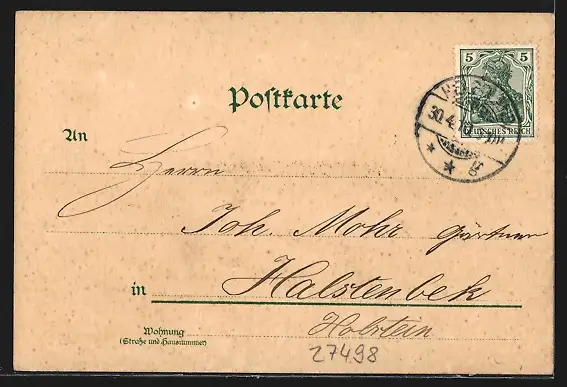 5 5
DEUTSCHES REICH
30.4.
Postkarte
An
Herrn
Joh. Mohr Gärtner
in Halstenbek
Holstein
Wohnung
(Straße und Hausnummer)
27498